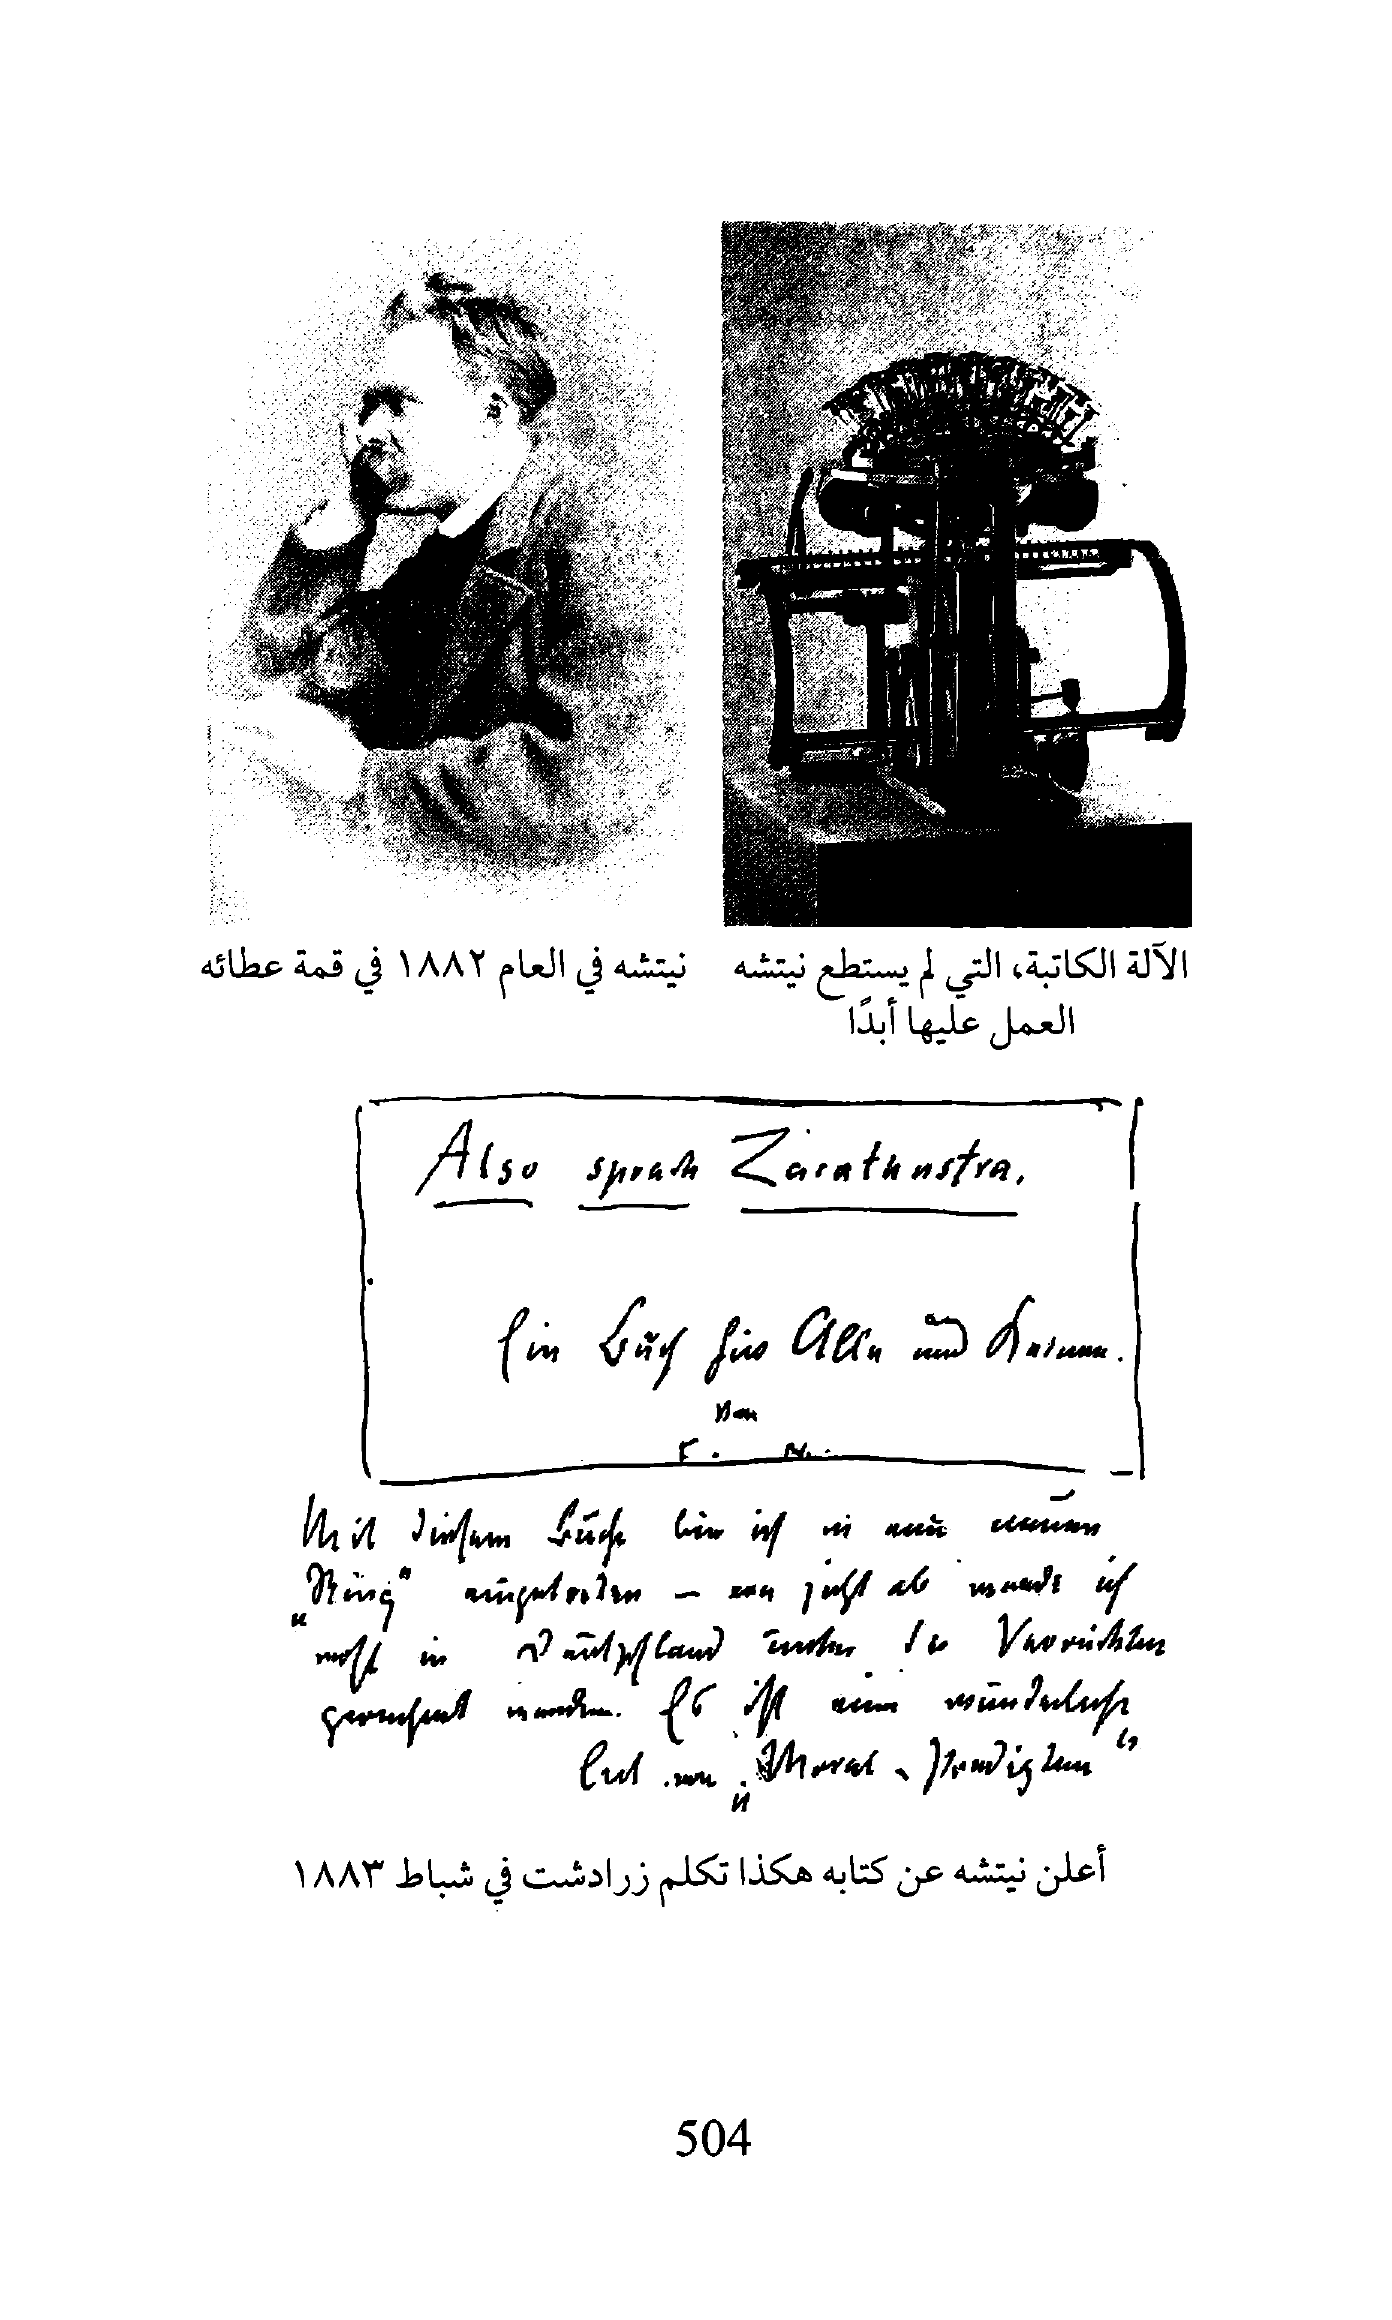 الآلة الكاتبة، التي لم يستطع نيتشه
العمل عليها أبدًا
نيتشه في العام ١٨٨٢ في قمة عطائه
Also sprach Zarathustra.
Ein Buch für Alle und Keinen.
Von
F. N.
Mit diesem Buche bin ich in einen neuen
„Ring" eingetreten — von jetzt ab werde ich
wohl in Deutschland unter die Verrückten
gerechnet werden. Es ist eine wunderliche
Art von „Moral-Predigten"
أعلن نيتشه عن كتابه هكذا تكلم زرادشت في شباط ١٨٨٣
504